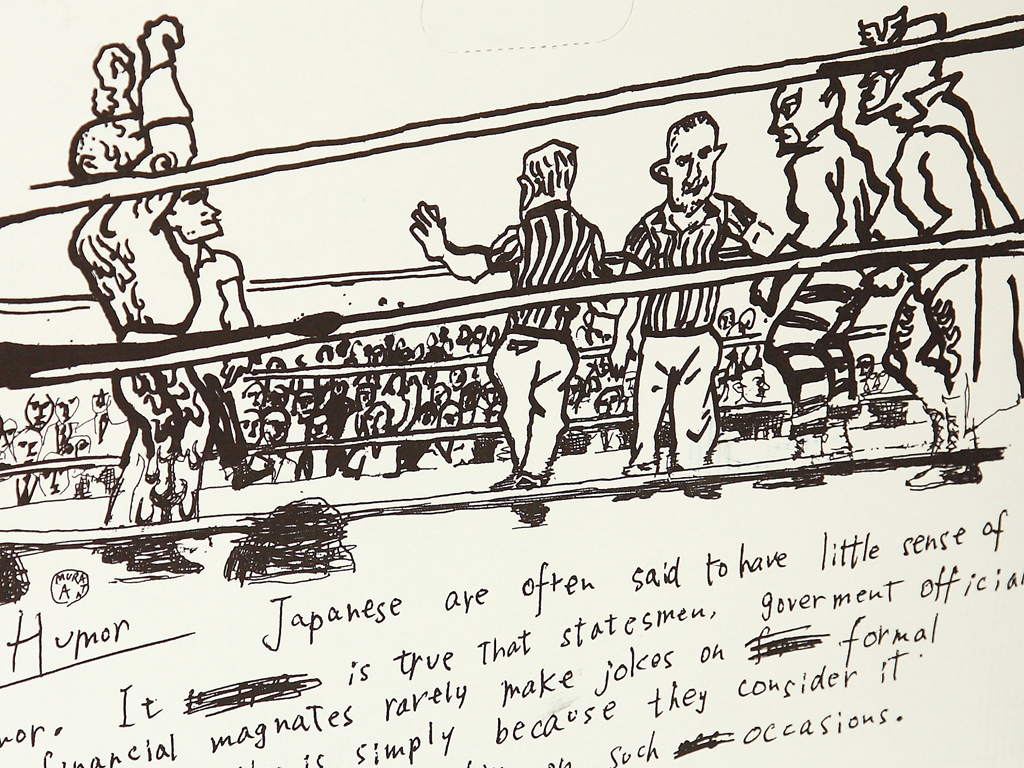 MURA AN
Humor Japanese are often said to have little sense of
mor. It is true that statesmen, goverment official
financial magnates rarely make jokes on formal
is simply because they consider it
on such occasions.